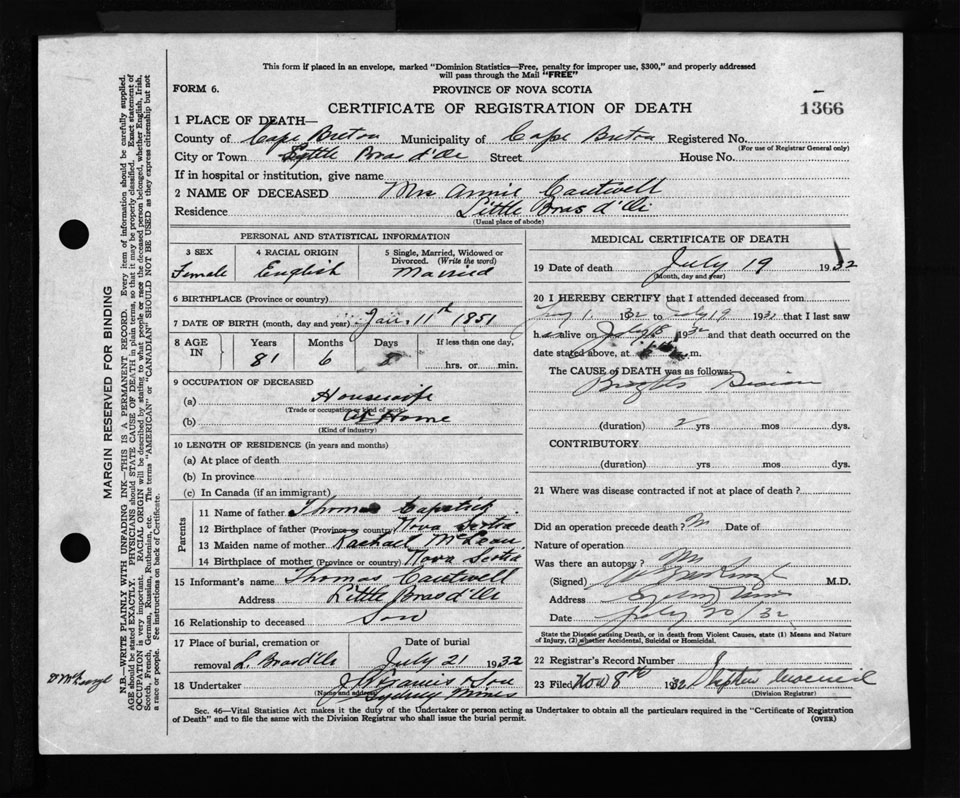 This form if placed in an envelope, marked "Dominion Statistics—Free, penalty for improper use, $300," and properly addressed
will pass through the Mail "FREE"
FORM 6.
PROVINCE OF NOVA SCOTIA
CERTIFICATE OF REGISTRATION OF DEATH
1366
1 PLACE OF DEATH—
County of Cape Breton Municipality of Cape Breton Registered No.
(For use of Registrar General only)
City or Town Little Bras d'Or Street House No.
If in hospital or institution, give name
2 NAME OF DECEASED Mrs Annie Cantwell
Residence Little Bras d'Or
(Usual place of abode)
PERSONAL AND STATISTICAL INFORMATION
3 SEX 4 RACIAL ORIGIN 5 Single, Married, Widowed or
Divorced. (Write the word)
Female English Married
6 BIRTHPLACE (Province or country)
7 DATE OF BIRTH (month, day and year) Jan 11th 1851
8 AGE IN Years Months Days If less than one day,
81 6 8 hrs. or min.
9 OCCUPATION OF DECEASED
(a) Housewife
(Trade or occupation or kind of work)
(b) At Home
(Kind of industry)
10 LENGTH OF RESIDENCE (in years and months)
(a) At place of death
(b) In province
(c) In Canada (if an immigrant)
Parents
11 Name of father Thomas Capstick
12 Birthplace of father (Province or country) Nova Scotia
13 Maiden name of mother Rachael McLean
14 Birthplace of mother (Province or country) Nova Scotia
15 Informant's name Thomas Cantwell
Address Little Bras d'Or
16 Relationship to deceased Son
17 Place of burial, cremation or Date of burial
removal L. Bras d'Or July 21 1932
18 Undertaker J Francis & Son
(Name and address) Sydney Mines
MEDICAL CERTIFICATE OF DEATH
19 Date of death July 19 1932
(Month, day and year)
20 I HEREBY CERTIFY that I attended deceased from
1. 1932 to July 19 1932 that I last saw
h alive on July 18 1932 and that death occurred on the
date stated above, at m.
The CAUSE of DEATH was as follows:
Brights Disease
(duration) 2 yrs mos dys.
CONTRIBUTORY
(duration) yrs. mos. dys.
21 Where was disease contracted if not at place of death?
Did an operation precede death? No Date of
Nature of operation
Was there an autopsy? No
(Signed) M.D.
Address Sydney Mines
Date July 20/32
State the Disease causing Death, or in death from Violent Causes, state (1) Means and Nature
of Injury, (2) whether Accidental, Suicidal or Homicidal.
22 Registrar's Record Number
23 Filed Nov 8th 1932 Stephen
(Division Registrar)
Sec. 46—Vital Statistics Act makes it the duty of the Undertaker or person acting as Undertaker to obtain all the particulars required in the "Certificate of Registration
of Death" and to file the same with the Division Registrar who shall issue the burial permit.
(OVER)
MARGIN RESERVED FOR BINDING
N.B.—WRITE PLAINLY WITH UNFADING INK—THIS IS A PERMANENT RECORD. Every item of information should be carefully supplied.
AGE should be stated EXACTLY. PHYSICIANS should STATE CAUSE OF DEATH in plain terms, so that it may be properly classified. Exact statement of
OCCUPATION is very important. RACIAL ORIGIN will be described by stating to what people or race the deceased person belonged, whether English, Irish,
Scotch, French, German, Russian, Ruthenian, etc. The terms "AMERICAN" or "CANADIAN" SHOULD NOT BE USED as they express citizenship but not
a race or people. See instructions on back of Certificate.